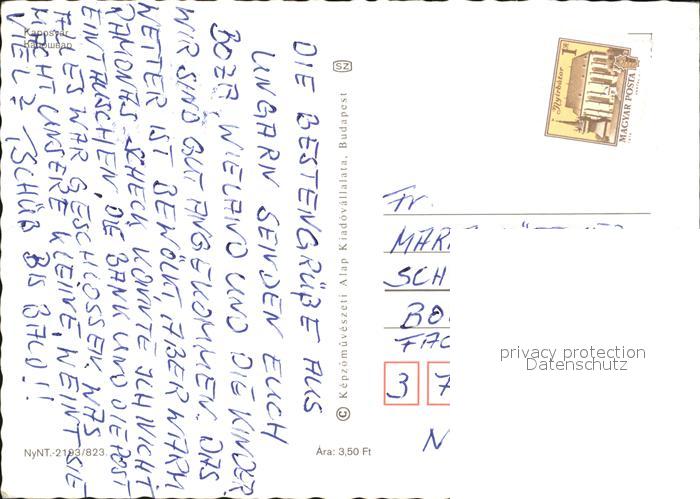 Kaposvár
Капошвар
DIE BESTEN GRÜßE AUS
UNGARN SENDEN EUCH
BOZA, WIELAND UND DIE KINDER
WIR SIND GUT ANGEKOMMEN. DAS
WETTER IST BEWÖLKT, ABER WARM
RAMONAS SCHECK KONNTE ICH NICHT
EINTAUSCHEN, DIE BANK UND DIE POST
ALLES WAR GESCHLOSSEN. WAS
MACHT UNSERE KLEINE, WEINT SIE
VIEL? TSCHÜß BIS BALD!!
NyNT.-2193/823.
Ára: 3,50 Ft
© Képzőművészeti Alap Kiadóvállalata, Budapest
SZ
1 Ft
Nyírbátor
MAGYAR POSTA
Fr.
MAR
SCH
BO
FAC
3 7
N
privacy protection
Datenschutz